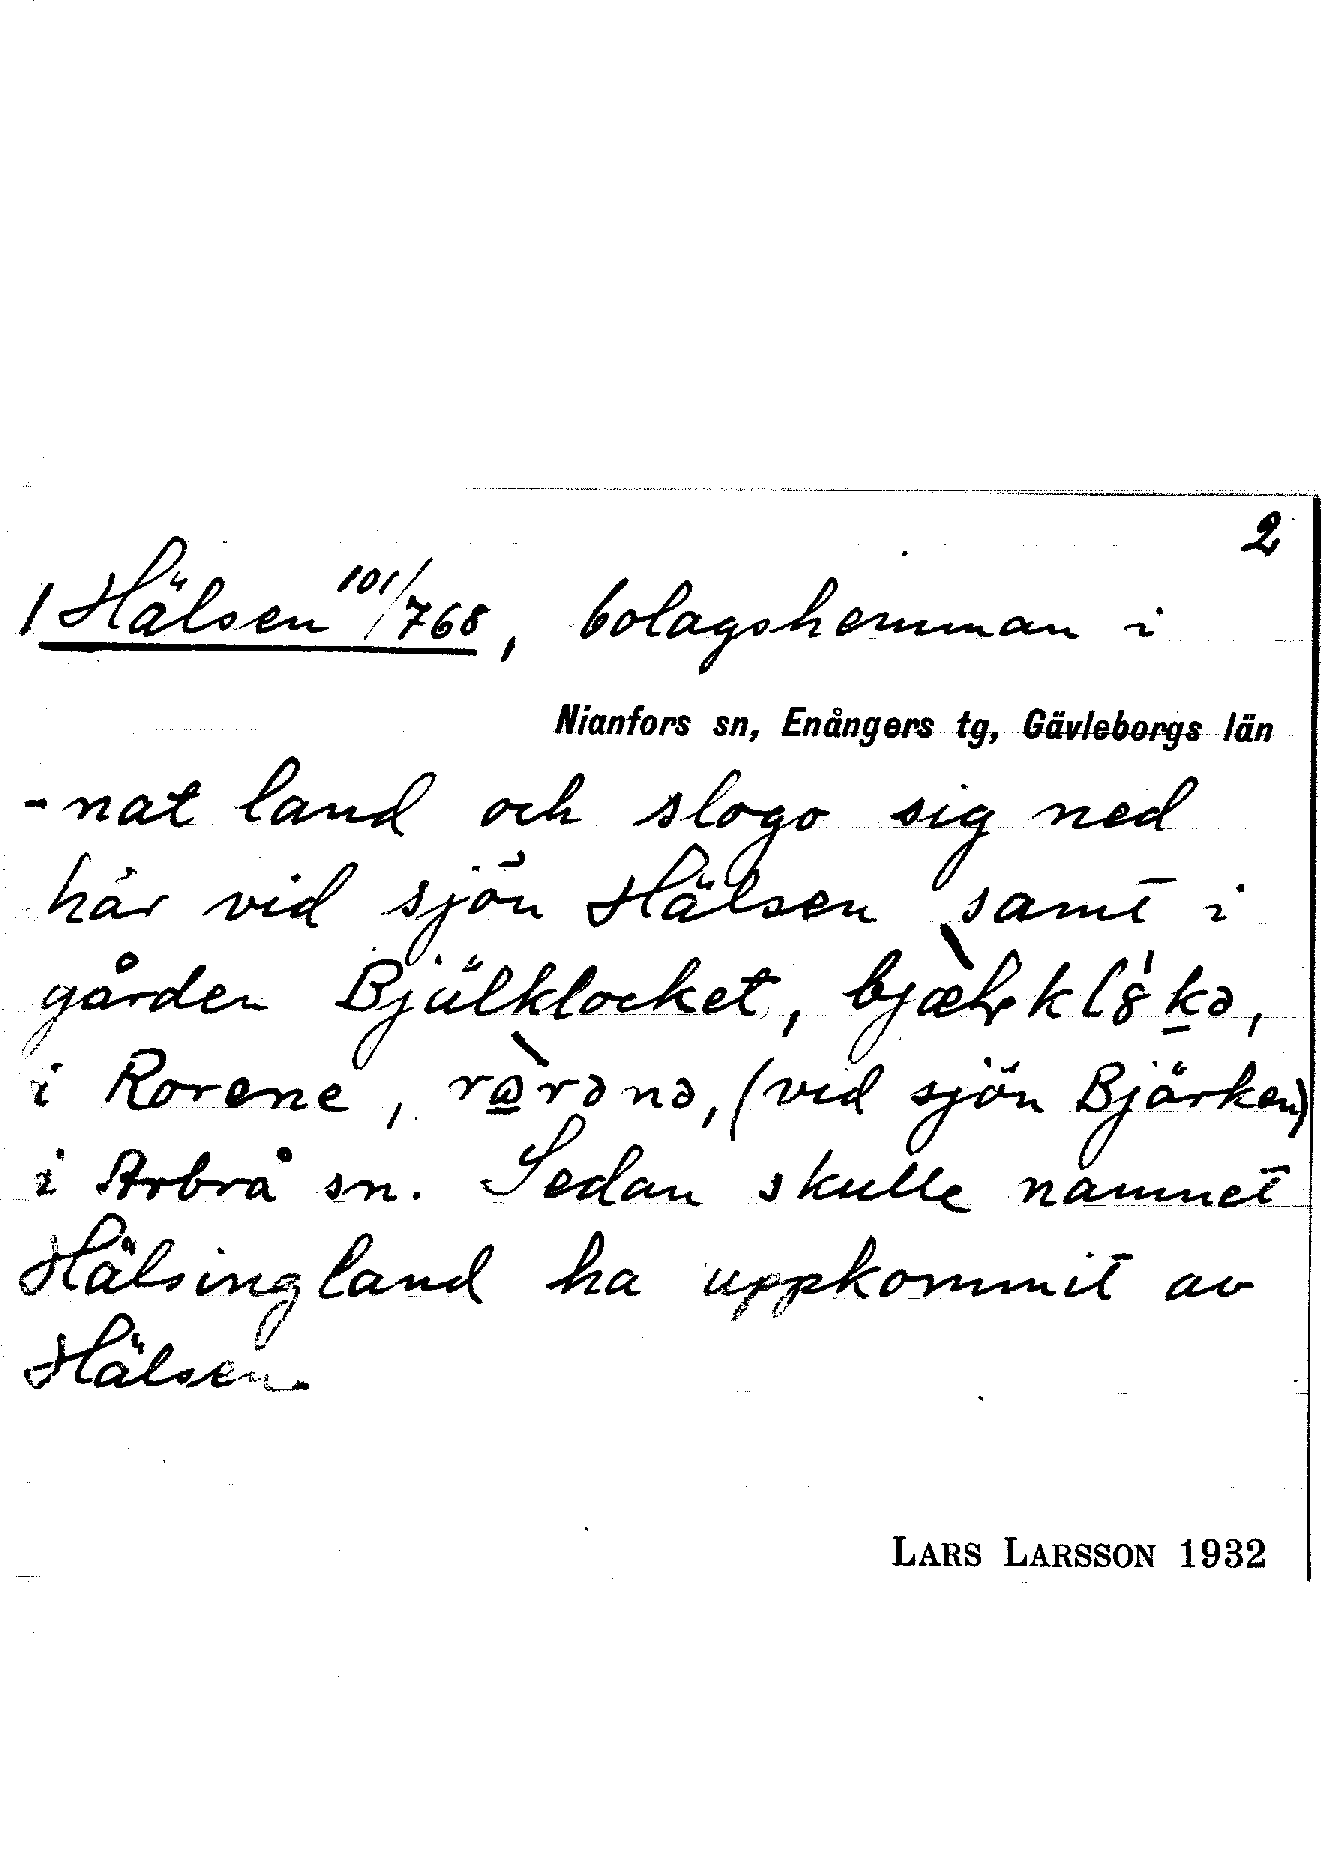 2
1 Hälsen 101/768, bolagshemman i
Nianfors sn, Enångers tg, Gävleborgs län
-nat land och slogo sig ned
här vid sjön Hälsen samt i
gården Bjälklocket,
i Rorene, (vid sjön Bjärken)
i Arbrå sn. Sedan skulle namnet
Hälsingland ha uppkommit av
Hälsen.
LARS LARSSON 1932